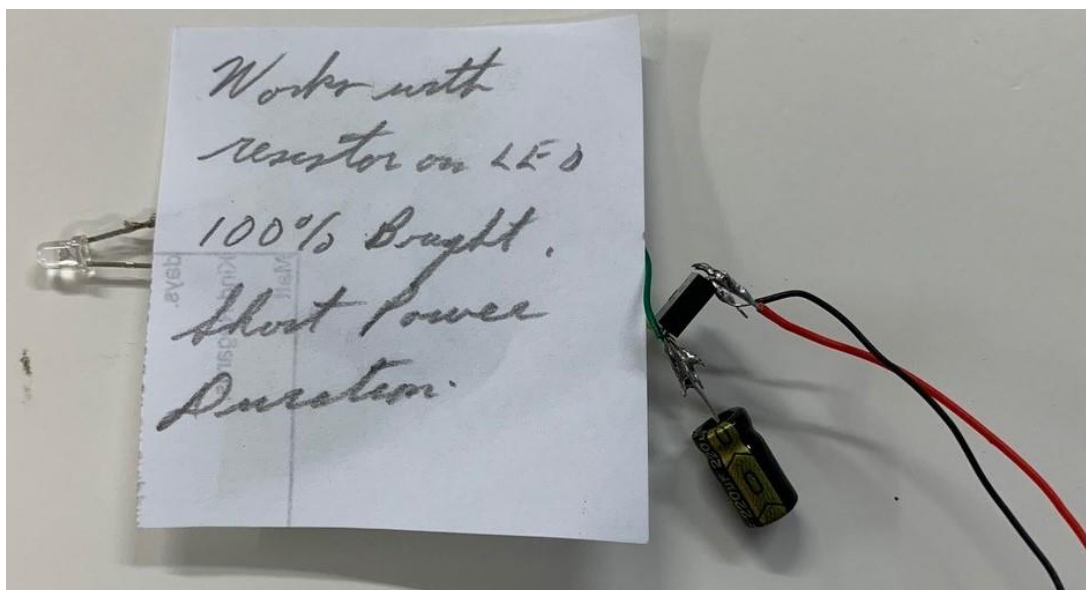 Works with
resistor on LED
100% Bright.
Short Power
Duration.
days.